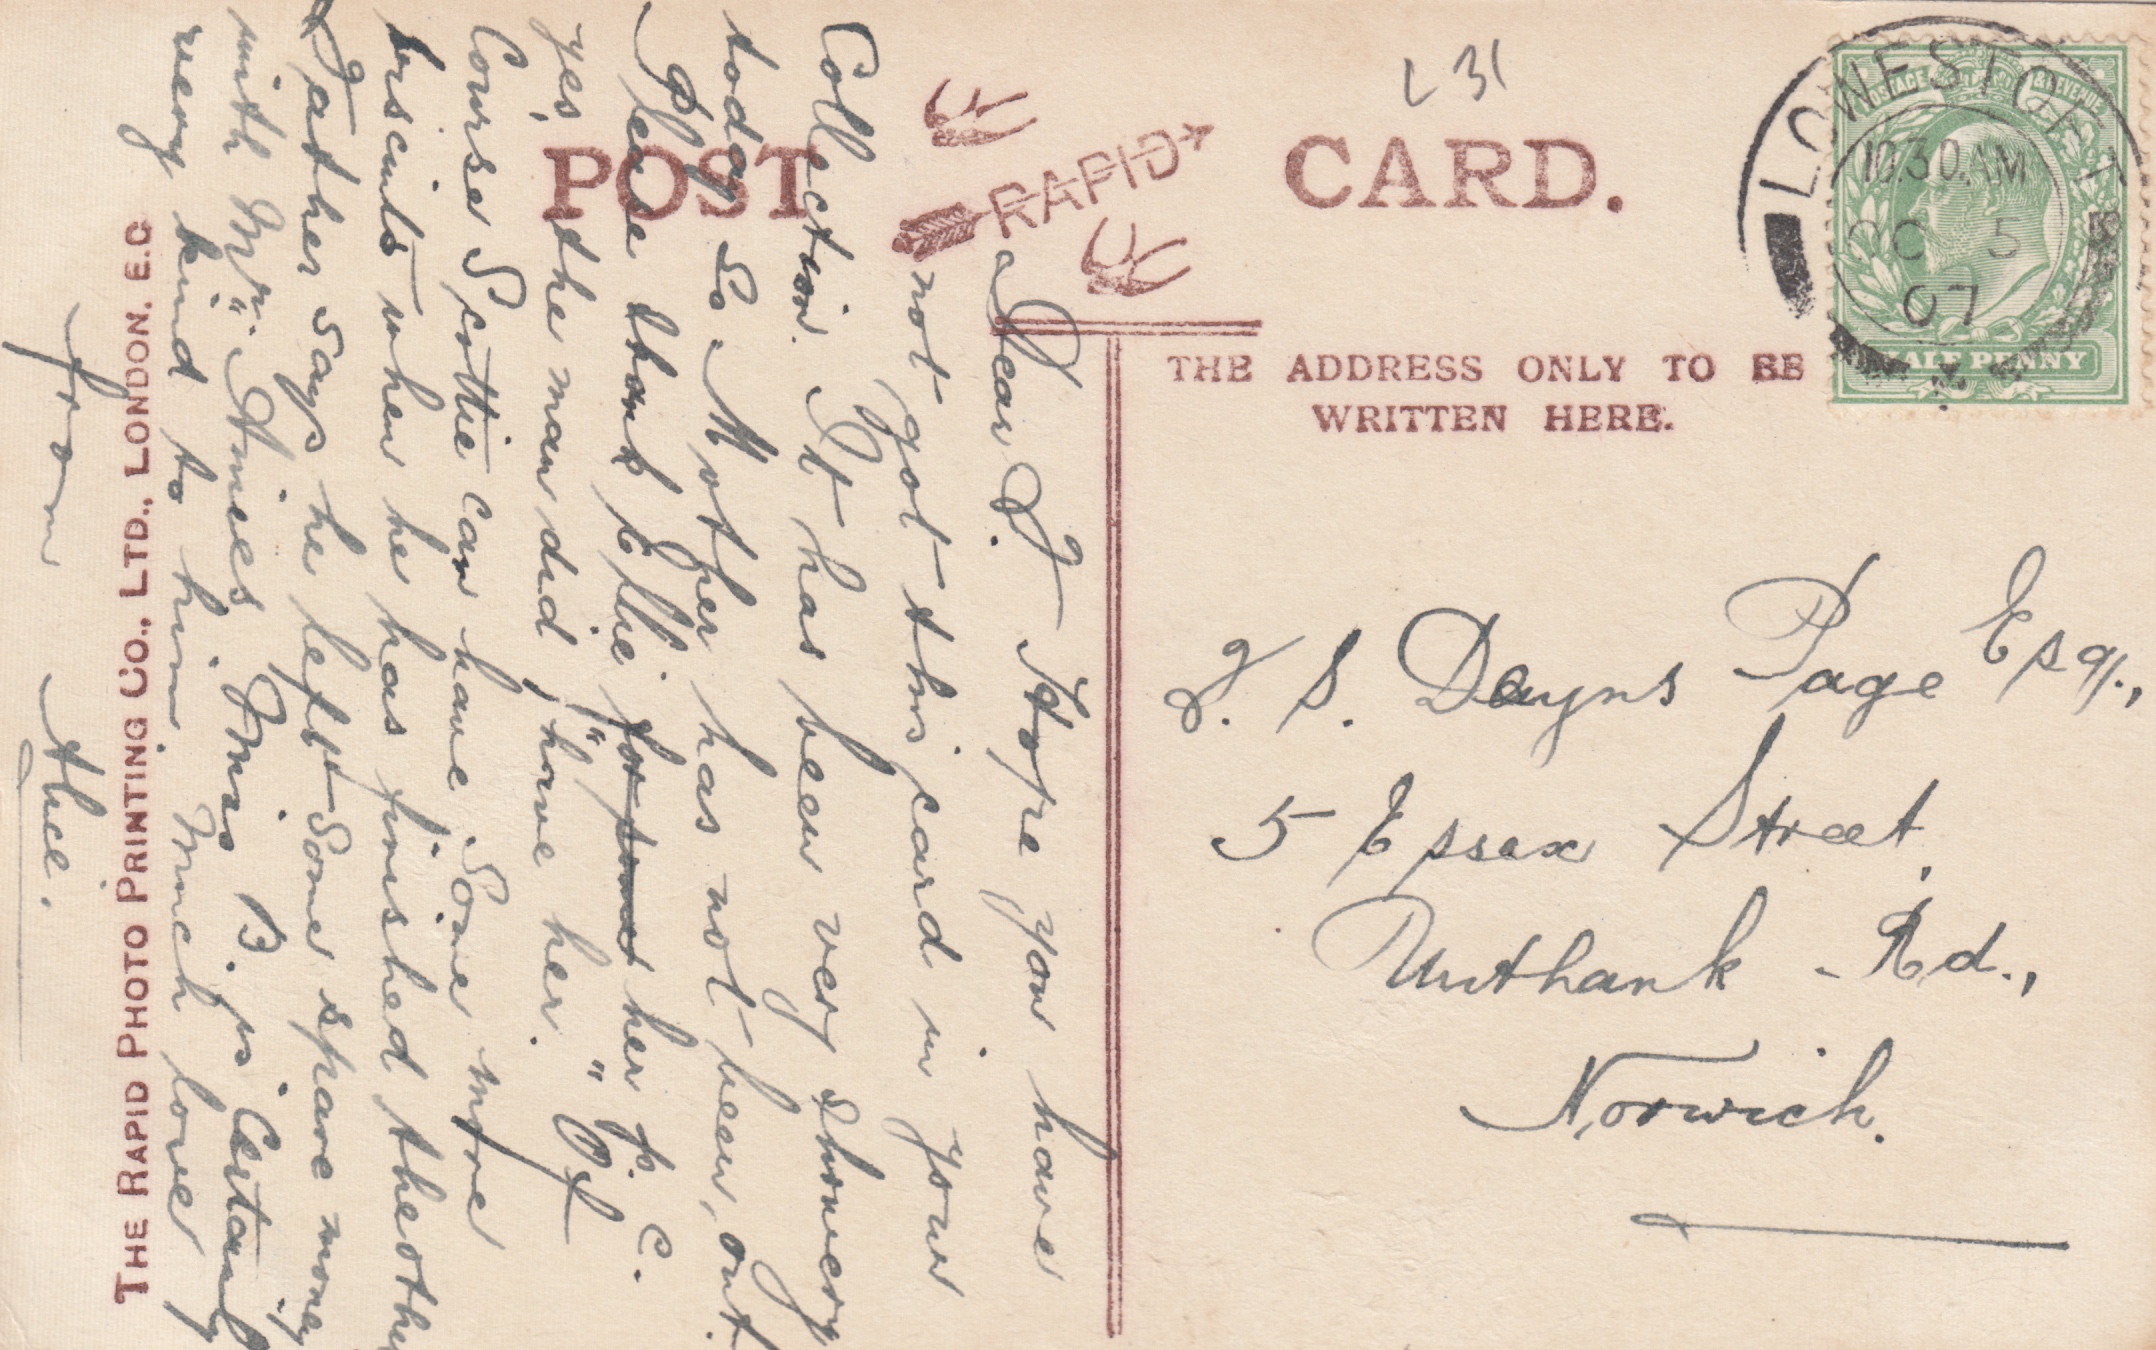 POST CARD.
RAPID
L 31
LOWESTOFT
10.30.AM
OC 5
07
POSTAGE & REVENUE
HALF PENNY
THE ADDRESS ONLY TO BE
WRITTEN HERE.
J. S. Dayns Page Esq.,
5 Essex Street,
Unthank Rd.,
Norwich.
Dear J. I Hope you have
not got this card in your
Collection. It has been very showery
today So Mother has not been, out.
Please thank Elsie for some her p. c.
yes, the man did, "have her." Of
Course Scottie can have some more
biscuits when he has finished the other
Father says he left some spare money
with Mr. Amies. Miss B. is certainly
very kind to him Much love
from Alice.
THE RAPID PHOTO PRINTING CO., LTD., LONDON. E.C